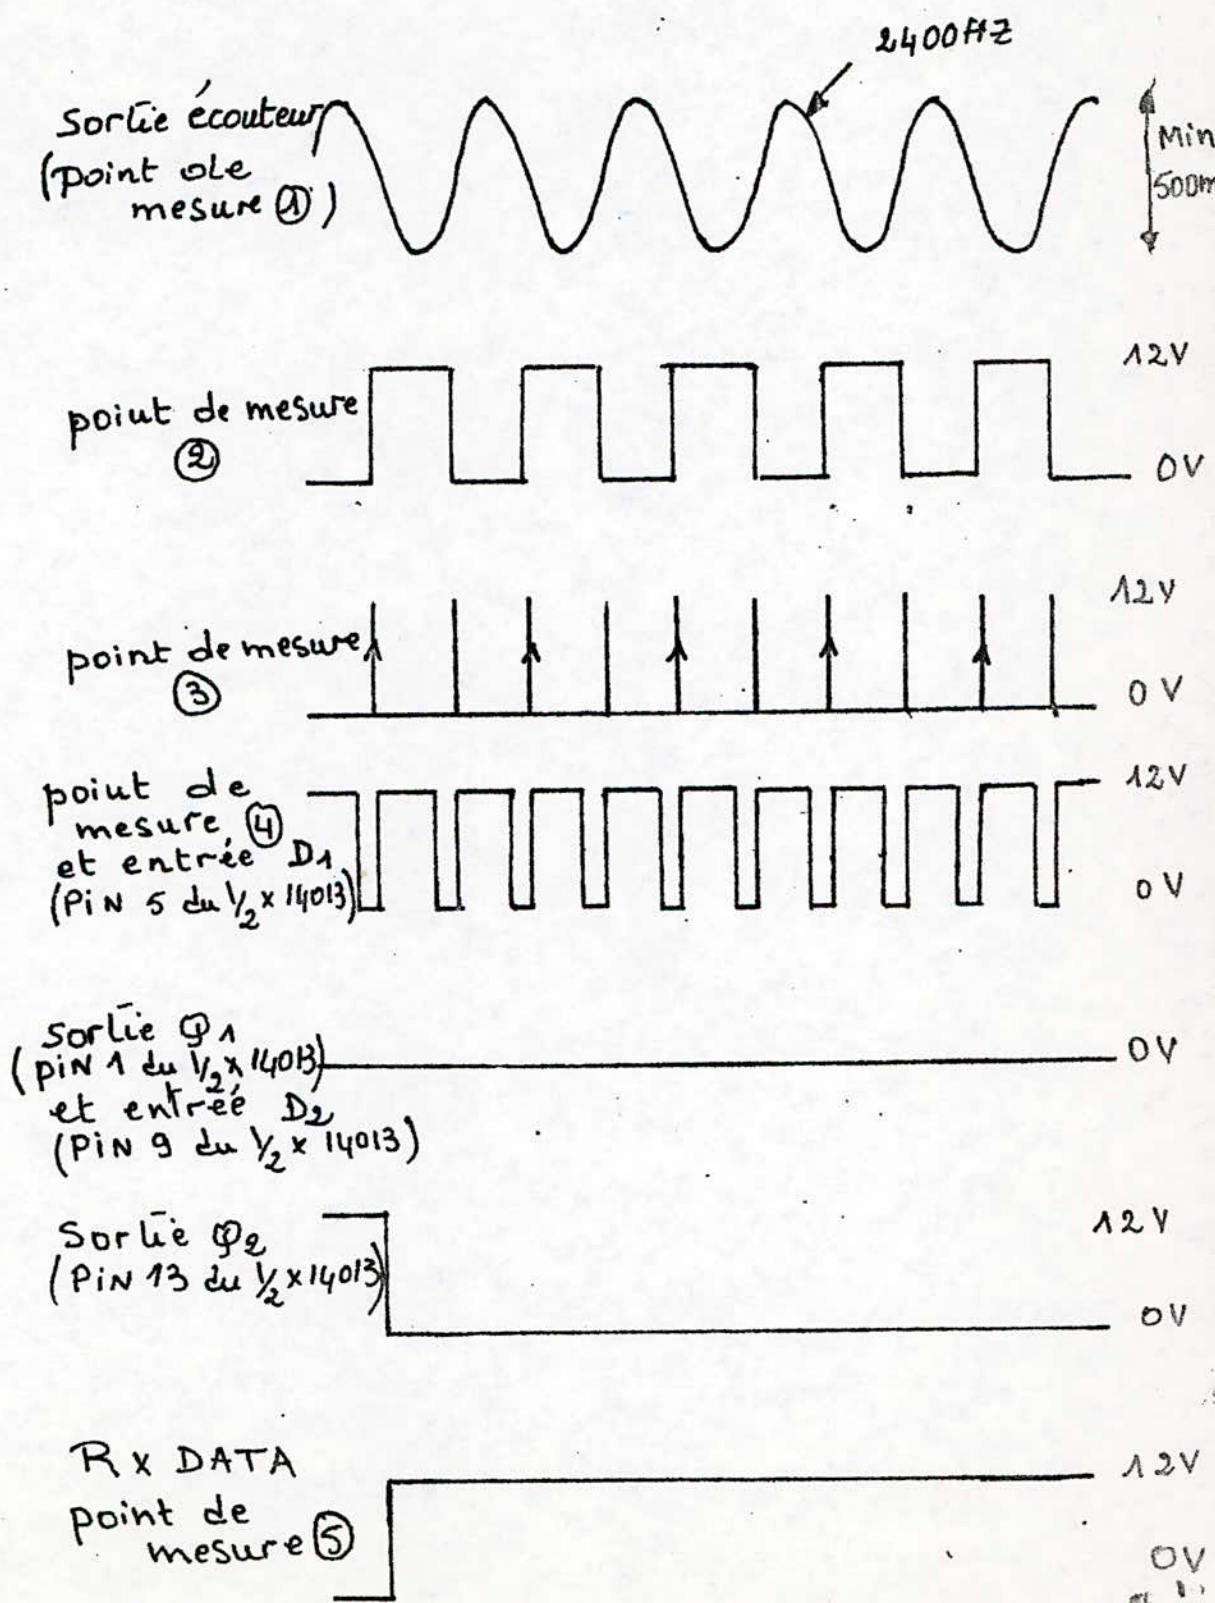 2400HZ
Sortie écouteur
(point de
mesure ①)
Min
500m
point de mesure
②
12V
0V
point de mesure
③
12V
0V
point de
mesure ④
et entrée D1
(PiN 5 du 1/2 x 14013)
12V
0V
Sortie Q1
(PiN 1 du 1/2 x 14013)
et entrée D2
(PiN 9 du 1/2 x 14013)
0V
Sortie Q2
(PiN 13 du 1/2 x 14013)
12V
0V
Rx DATA
point de
mesure ⑤
12V
0V